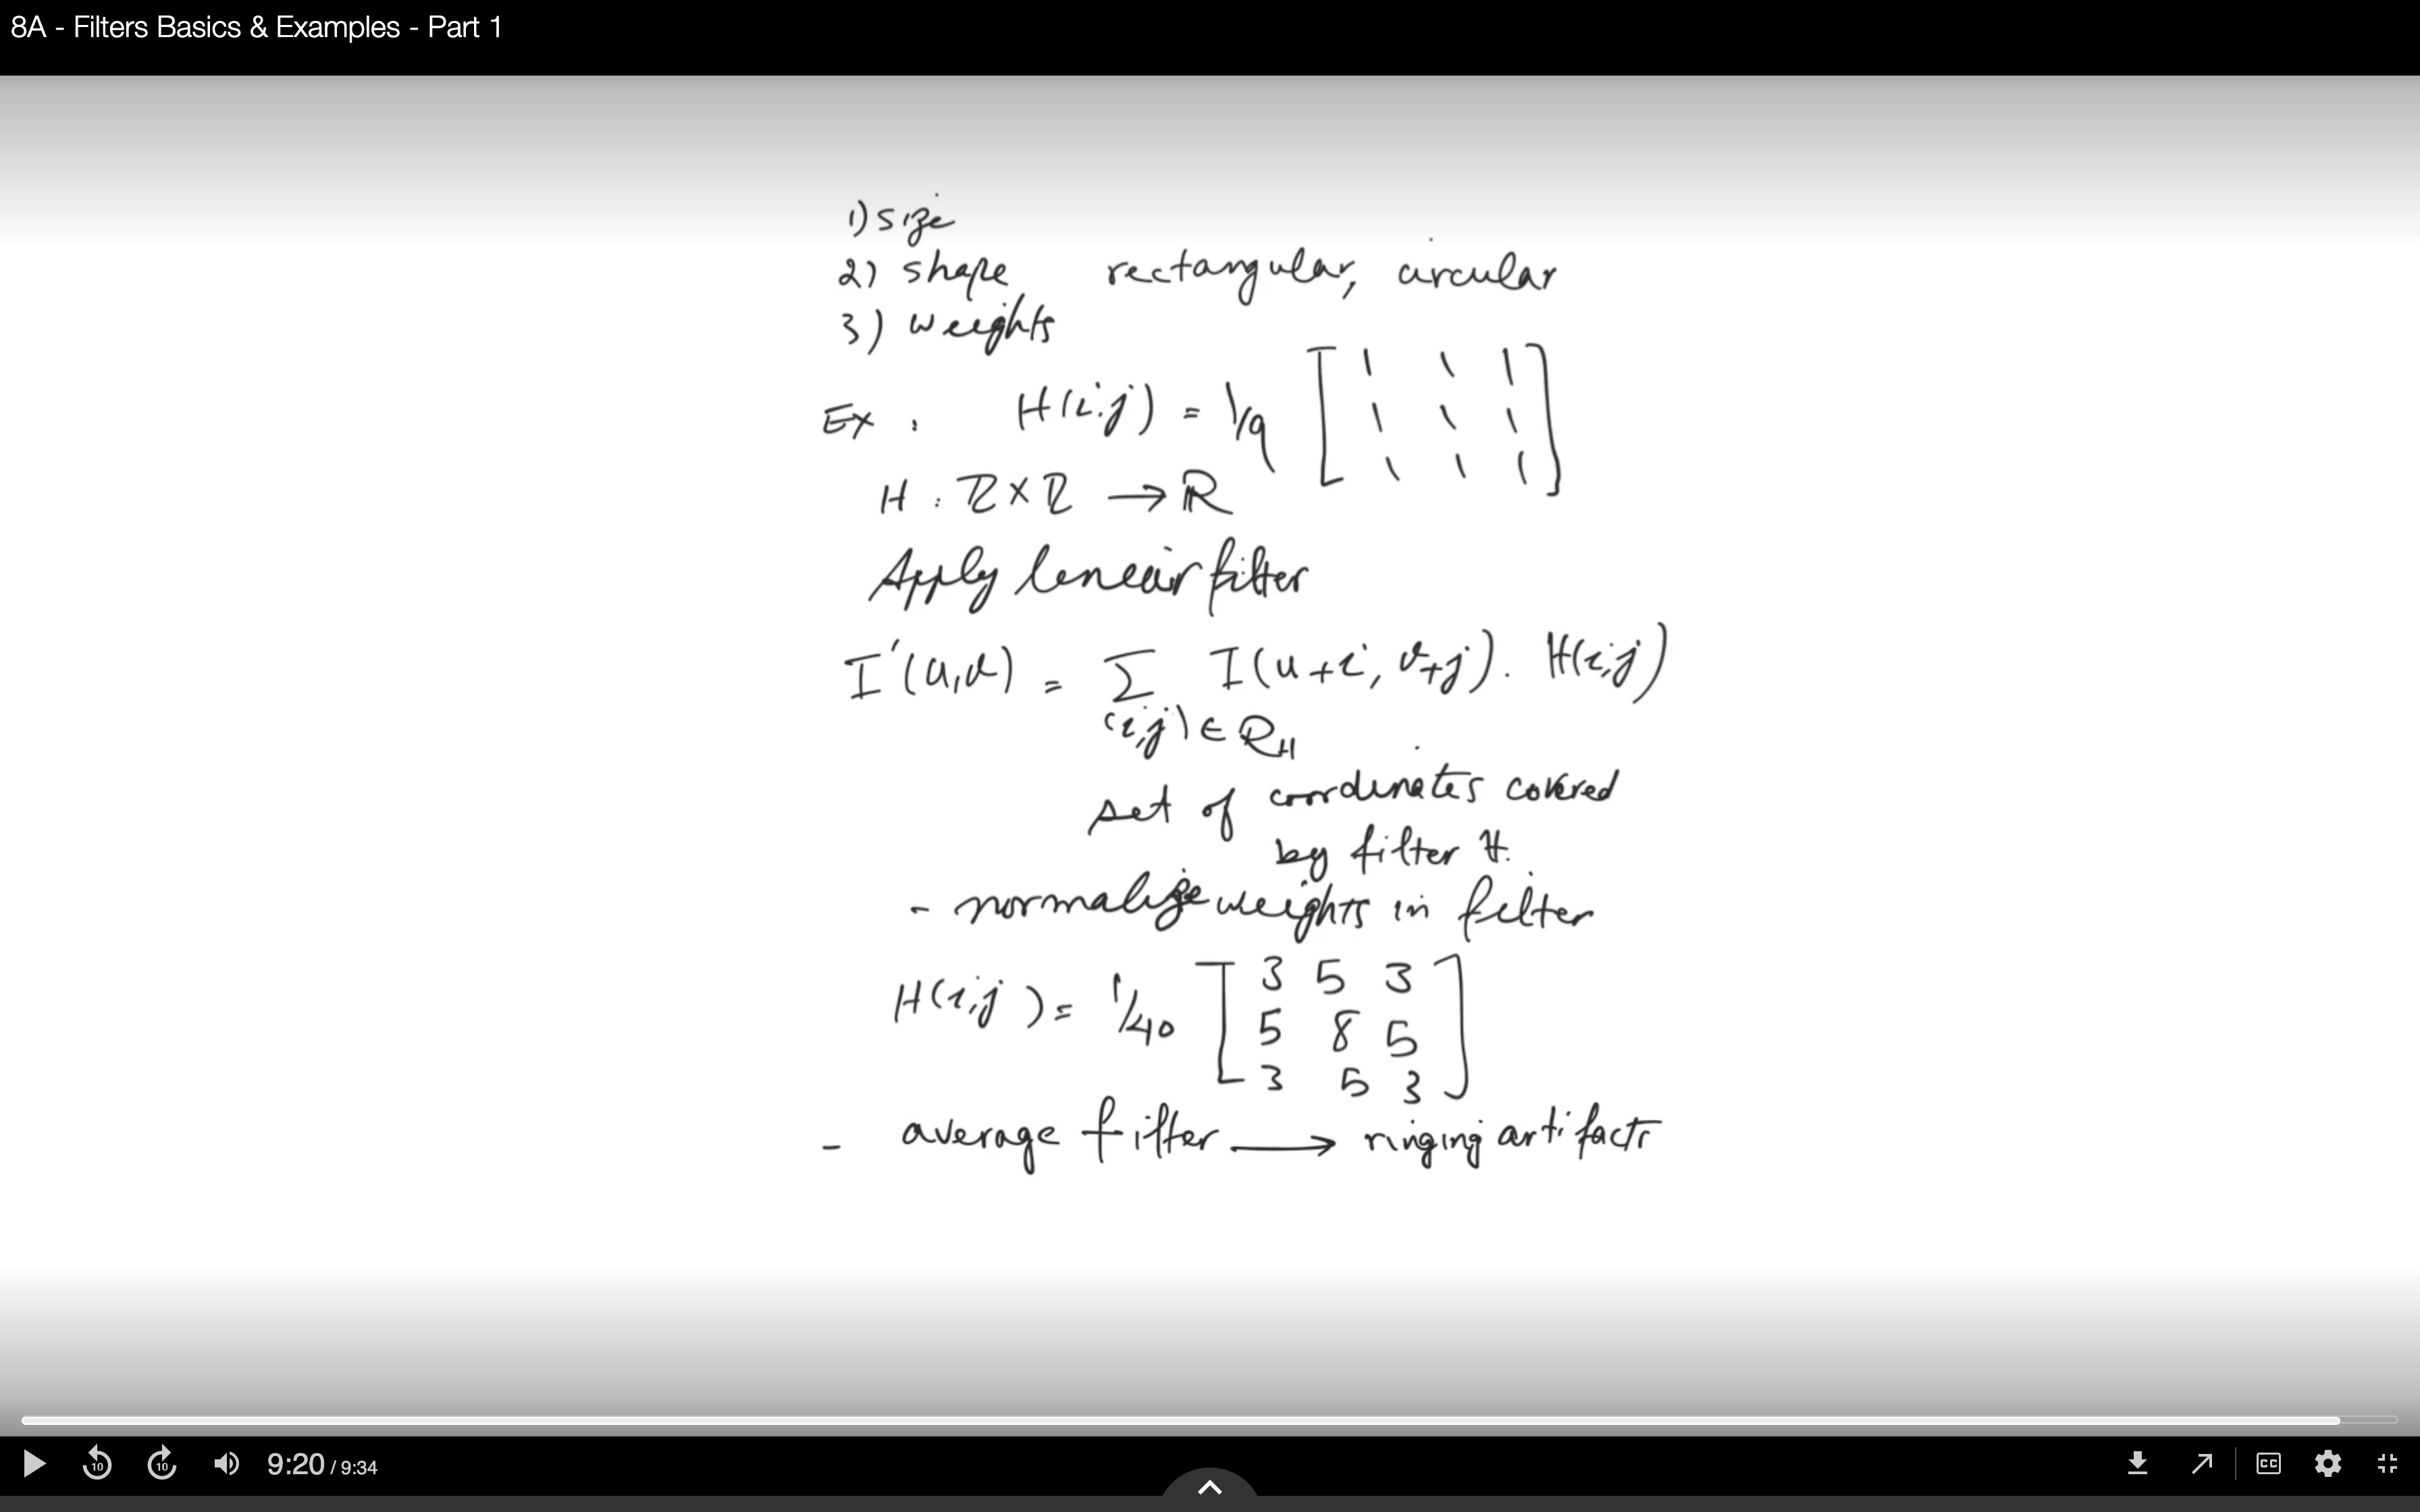 8A - Filters Basics & Examples - Part 1
1) size
2) shape rectangular, circular
3) weights
Ex : H(i,j) = 1/9 [ 1 1 1
1 1 1
1 1 1 ]
H : Z × Z → R
Apply linear filter
I'(u,v) = Σ I(u+i, v+j) . H(i,j)
(i,j) ∈ R_H
set of coordinates covered
by filter H.
- normalize weights in filter
H(i,j) = 1/40 [ 3 5 3
5 8 5
3 5 3 ]
- average filter → ringing artifacts
10 10 9:20 / 9:34 CC